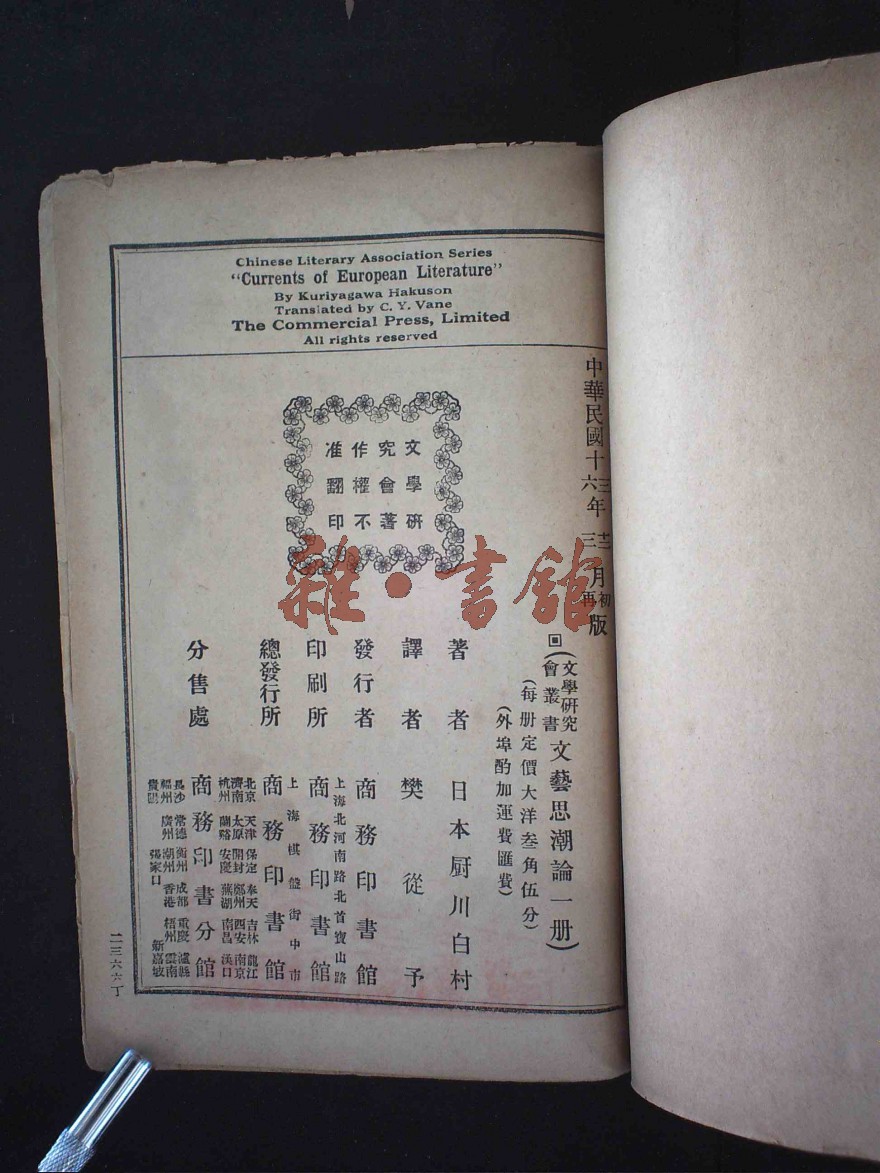 Chinese Literary Association Series
“Currents of European Literature”
By Kuriyagawa Hakuson
Translated by C. Y. Vane
The Commercial Press, Limited
All rights reserved
中華民國十三六年十二三月初再版
文學研
究會著
作權不
准翻印
雜·書館
回(文學研究會叢書文藝思潮論一册)
(每册定價大洋叁角伍分)
(外埠酌加運費匯費)
著者 日本厨川白村
譯者 樊從予
發行者 商務印書館
上海北河南路北首寶山路
印刷所 商務印書館
上海棋盤街中市
總發行所 商務印書館
北京 天津 保定 奉天 吉林 龍江
濟南 太原 開封 鄭州 西安 南京
杭州 蘭谿 安慶 蕪湖 南昌 漢口
分售處 商務印書分館
長沙 常德 衡州 成都 重慶 瀘縣
福州 廣州 潮州 香港 梧州 雲南
貴陽 張家口 新嘉坡
二三六六丁